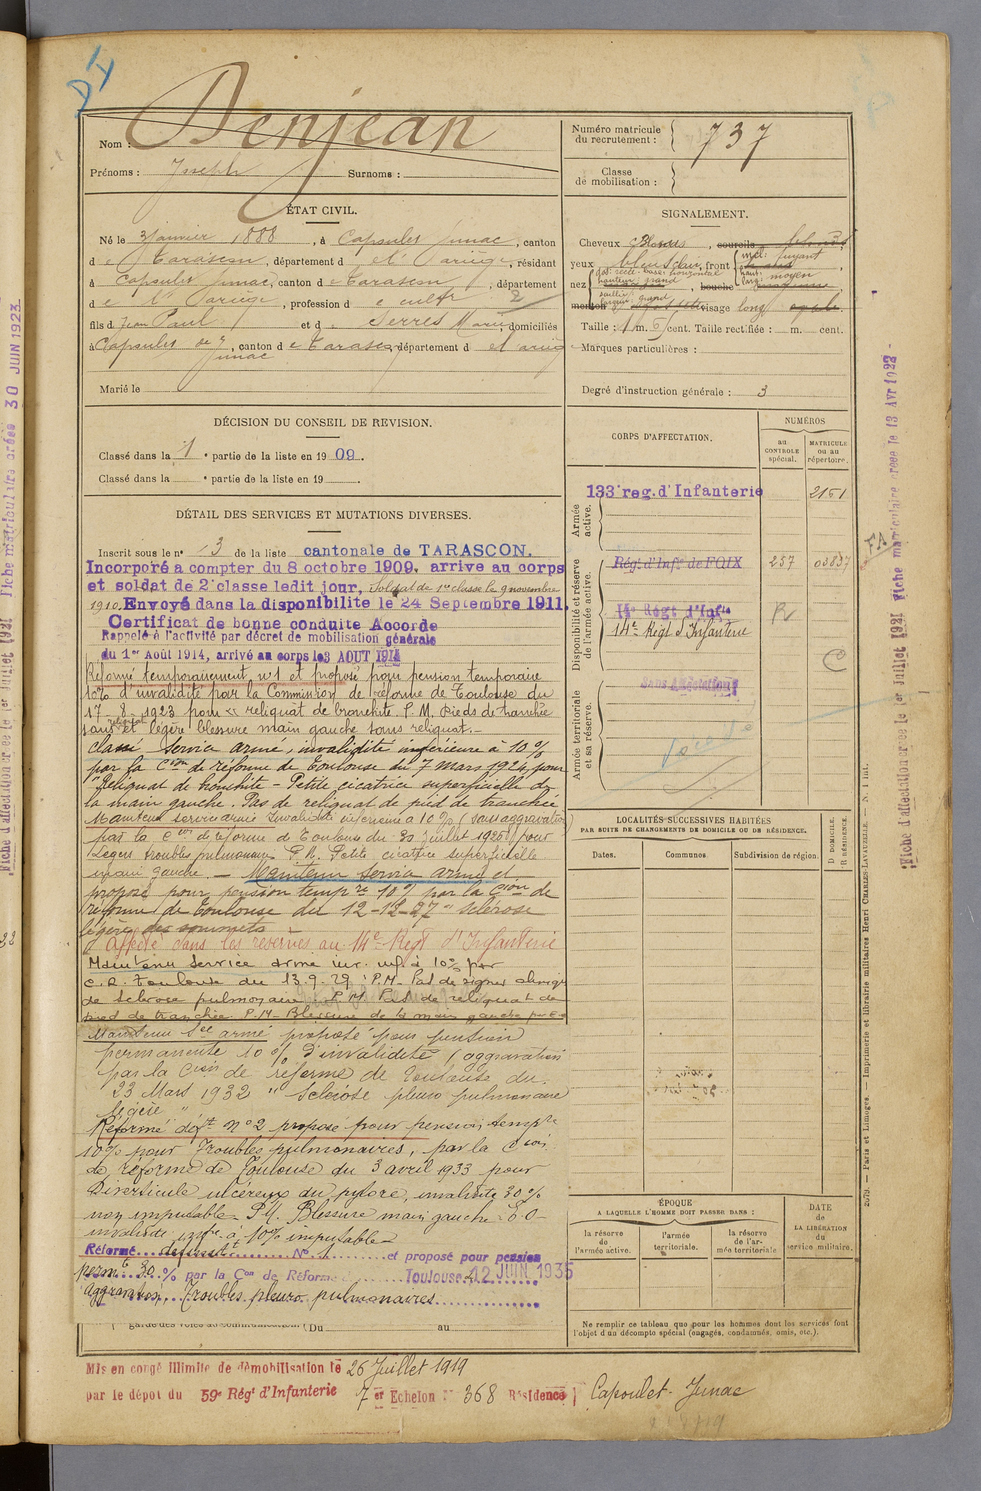 Nom : Denjean
Prénoms : Joseph Surnoms :
Numéro matricule
du recrutement : 737
Classe
de mobilisation :
ÉTAT CIVIL.
Né le 3 janvier 1888, à Capoulet Junac, canton
de Tarascon, département de l'Ariège, résidant
à Capoulet Junac, canton de Tarascon, département
de l'Ariège, profession de cultr 2
fils de Jean Paul et de Serres Marie, domiciliés
à Capoulet de Junac, canton de Tarascon, département de l'Ariège
Marié le
SIGNALEMENT.
Cheveux blonds, sourcils
yeux bleus clair, front incl: fuyant
nez dos: rectl. base: horizontal
hauteur: grand
saillie:
largeur: grand
bouche
larg: moyen
menton visage long
Taille : 1 m. cent. Taille rectifiée : m. cent.
Marques particulières :
Degré d'instruction générale : 3
DÉCISION DU CONSEIL DE REVISION.
Classé dans la 1e partie de la liste en 1909.
Classé dans la e partie de la liste en 19
DÉTAIL DES SERVICES ET MUTATIONS DIVERSES.
Inscrit sous le n° 3 de la liste cantonale de TARASCON.
Incorporé a compter du 8 octobre 1909, arrive au corps
et soldat de 2e classe ledit jour, Soldat de 1re classe le 9 novembre
1910. Envoyé dans la disponibilite le 24 Septembre 1911.
Certificat de bonne conduite Accorde
Rappelé à l'activité par décret de mobilisation générale
du 1er Août 1914, arrivé au corps le 3 AOUT 1914
Réformé temporairement n°1 et proposé pour pension temporaire
10% d'invalidité par la Commission de réforme de Toulouse du
17-8-1923 pour "reliquat de bronchite. P.M. Pieds de tranchée
sans reliquat et légère blessure main gauche sans reliquat.-
Classé Service armé, invalidité inférieure à 10%
par la Cion de réforme de Toulouse du 7 mars 1924, pour
"Reliquat de bronchite - Petite cicatrice superficielle de
la main gauche. Pas de reliquat de pied de tranchée
Maintenu service armé Invalidité inférieure à 10% (sans aggravation)
par la Cion de réforme de Toulouse du 30 Juillet 1925 pour
Légers troubles pulmonaires P.M. Petite cicatrice superficielle
main gauche. - Maintenu service armé et
proposé pour pension tempre 10% par la Cion de
réforme de Toulouse du 12-12-27 "sclérose
légère des sommets
Affecté dans les réserves au 14e Régt d'Infanterie
Maintenu Service armé inv. inf. à 10% par
C.R. Toulouse du 13.9.29 : P.M- Pas de signes cliniqs
de sclérose pulmonaire. P.M Pas de reliquat de
pied de tranchée. P.M- Blessure de la main gauche
Maintenu Sce armé proposé pour pension
permanente 10% d'invalidité (aggravation
par la Cion de réforme de Toulouse du
23 Mars 1932 "Sclérose pleuro pulmonaire
légère"
Réformé déft N°2 proposé pour pension tempre
10% pour Troubles pulmonaires, par la Cion
de réforme de Toulouse du 3 avril 1933 pour
Diverticule ulcéreux du pylore, invalidité 30%
non imputable P.M. Blessure main gauche
invalidité infre à 10% imputable
Réformé définitt N° 1 et proposé pour pension
permte 30 % par la Con de Réforme Toulouse 12 JUIN 1935
Aggravation, Troubles pleuro pulmonaires
Du au
CORPS D'AFFECTATION.
NUMÉROS
au
CONTROLE
spécial.
MATRICULE
ou au
répertoire.
Armée
active.
133e reg. d'Infanterie 2151
Disponibilité et réserve
de l'armée active.
Régt d'Infie de FOIX 257
14e Régt d'Infie
14e Régt d'Infanterie
R
C
FA
Armée territoriale
et sa réserve.
Sans Affectation
LOCALITÉS SUCCESSIVES HABITÉES
PAR SUITE DE CHANGEMENTS DE DOMICILE OU DE RÉSIDENCE.
Dates. Communes. Subdivision de région.
D DOMICILE.
R RÉSIDENCE.
ÉPOQUE
A LAQUELLE L'HOMME DOIT PASSER DANS :
la réserve
de
l'armée active.
l'armée
territoriale.
la réserve
de l'ar-
mée territoriale
DATE
de
LA LIBÉRATION
du
service militaire.
Ne remplir ce tableau que pour les hommes dont les services font
l'objet d'un décompte spécial (engagés, condamnés, omis, etc.).
Mis en congé illimité de démobilisation le 26 Juillet 1919
par le dépot du 59e Régt d'Infanterie 7er Echelon N° 368 Résidence Capoulet-Junac
2579. — Paris et Limoges. — Imprimerie et librairie militaires Henri CHARLES-LAVAUZELLE.
Fiche d'affectation créée le 1er Juillet 1931 Fiche matriculaire créée le 13 Avr
Fiche d'affectation créée le 1er Juillet 1931 Fiche matriculaire créée 30 JUIN 1923